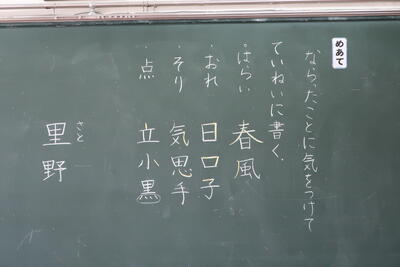 めあて
ならったことに気をつけて
ていねいに書く。
・はらい 春風
・おれ 日口子
・そり 気思手
・点 立小黒
さと
里野